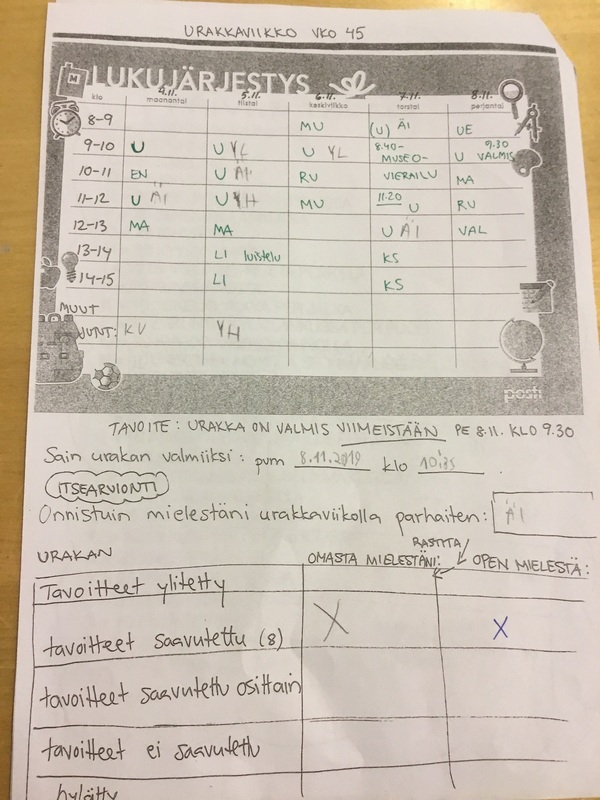 URAKKAVIIKKO VKO 45
M LUKUJÄRJESTYS
4.11. 5.11. 6.11. 7.11. 8.11.
klo maanantai tiistai keskiviikko torstai perjantai
8-9 MU (U) ÄI UE
9-10 U U YL U YL 8.40- MUSEO- U 9.30 VALMIS
10-11 EN U ÄI RU VIERAILU MA
11-12 U ÄI U YH MU 11.20 U RU
12-13 MA MA U ÄI VAL
13-14 LI luistelu KS
14-15 LI KS
MUUT
KV YH
posti
TAVOITE: URAKKA ON VALMIS VIIMEISTÄÄN PE 8.11. KLO 9.30
Sain urakan valmiiksi: pvm 8.11.2019 klo 10:35.
ITSEARVIOINTI
Onnistuin mielestäni urakkaviikolla parhaiten: ÄI
RASTITA
URAKAN OMASTA MIELESTÄNI: OPEN MIELESTÄ:
Tavoitteet ylitetty
tavoitteet saavutettu (8) X X
tavoitteet saavutettu osittain
tavoitteet ei saavutettu
hylätty